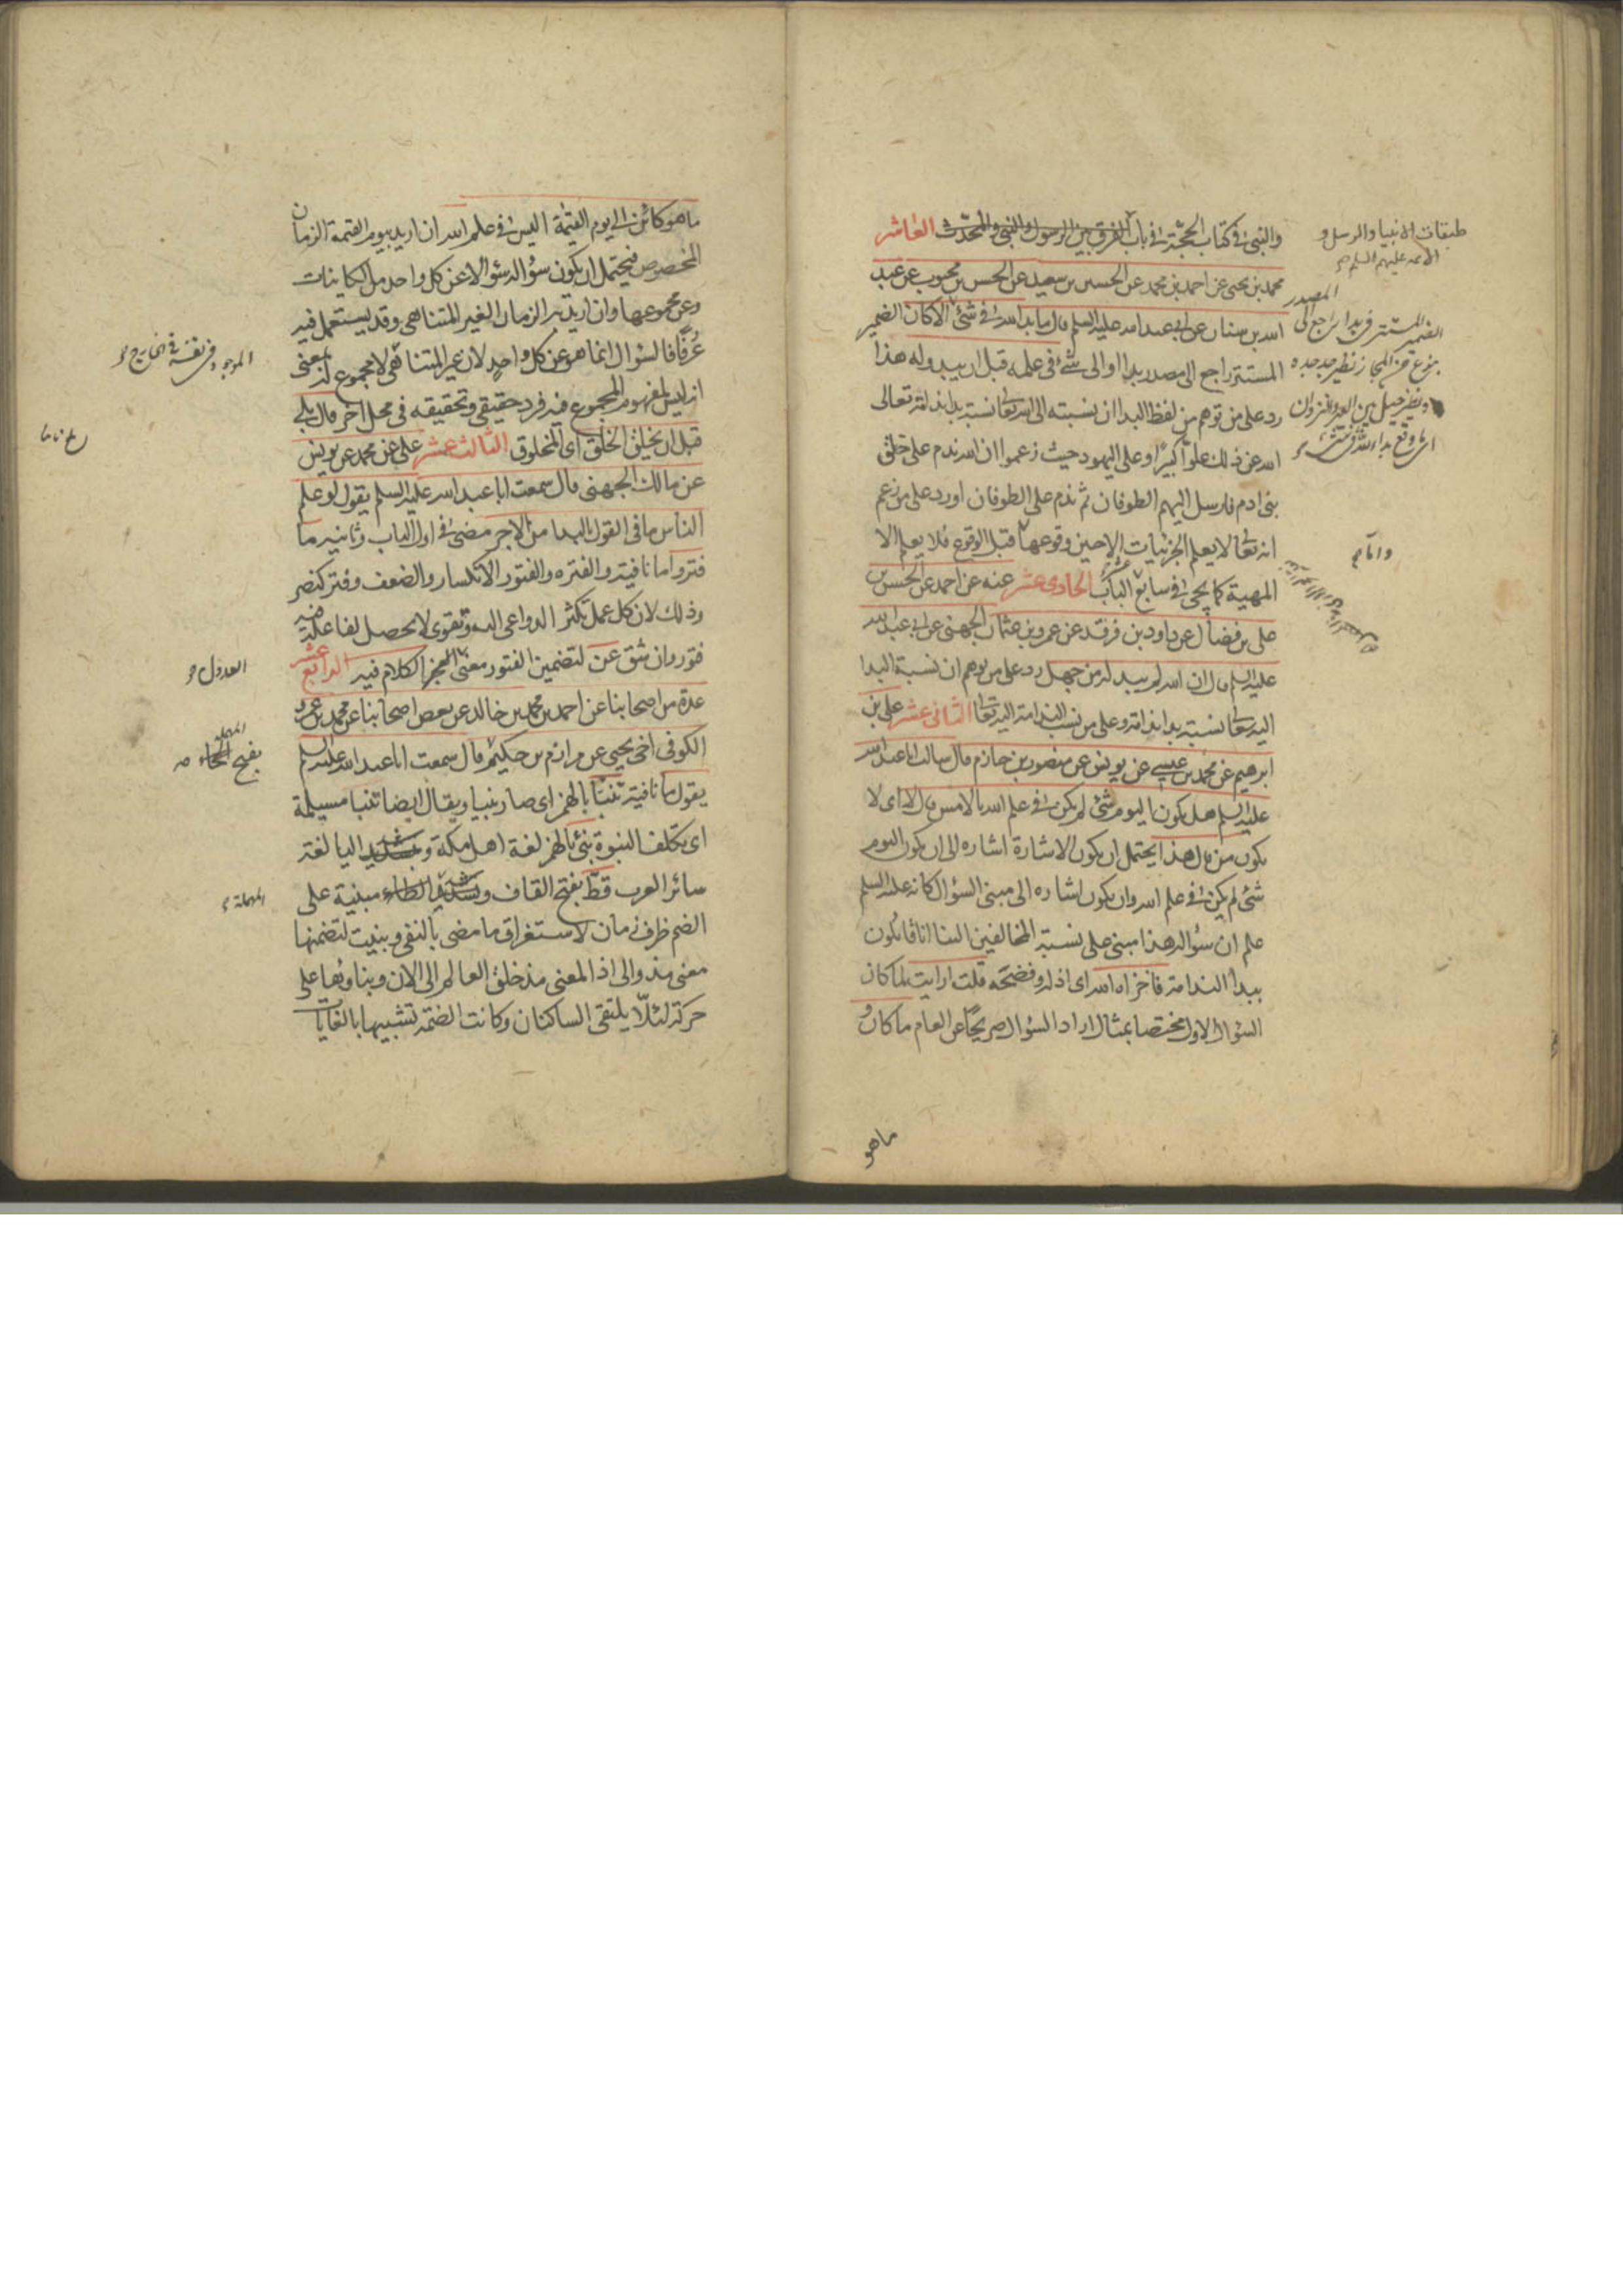 والنبي في كتاب الحجة في باب الفرق بين الرسول والنبي والمحدث العاشر
محمد بن يحيى عن احمد بن محمد عن الحسين بن سعيد عن الحسن بن محبوب عن عبد
الله بن سنان عن ابي عبد الله عليه السلم قال ما بدا لله في شئ الا كان الضمير
المستتر راجع الى مصدر بدا او الى شئ في علمه قبل ان يبدو له هذا
رد على من توهم من لفظ البدا ان نسبته الى الله تعا نسبة بدا ندامة تعالى
الله عن ذلك علوا كبيرا وعلى اليهود حيث زعموا ان الله ندم على خلق
بنى ادم فارسل اليهم الطوفان ثم ندم على الطوفان او رد على من زعم
انه تعا لا يعلم الجزئيات الا حين وقوعها قبل الوقوع فلا يعلم الا
المهية كما يجئ في سابع الباب الحادى عشر عنه عن احمد عن الحسن بن
على بن فضال عن داود بن فرقد عن عمرو بن عثمان الجهنى عن ابي عبد الله
عليه السلم قال ان الله لم يبد له من جهل رد على من توهم ان نسبة البدا
اليه تعا نسبة بدا ندامة وعلى من نسب الندامة اليه تعا الثانى عشر على بن
ابرهيم عن محمد بن عيسى عن يونس عن منصور بن حازم قال سالت ابا عبد الله
عليه السلم هل يكون اليوم شئ لم يكن في علم الله بالامس قال لا اى لا
يكون من قال هذا يحتمل ان يكون الاشارة اشاره الى ان يكون اليوم
شئ لم يكن في علم الله وان يكون اشاره الى مبنى السؤال كانه عليه السلم
علم ان سؤاله هذا مبنى على نسبة المخالفين الينا انا قايلون
ببدا الندامة فاخزاه الله اى اذله وفضحه قلت ارايت لما كان
السؤال الاول مختصا بمثال اراد السؤال صريحا عن العام ما كان و
ماهو
طبقات الانبيا والرسل و
الائمه عليهم السلم
المصدر
الضمير المستتر في بدا راجع الى
بنوع من المجاز نظير جد جده
وانما
ما هو كائن الى يوم القيمة اليس في علم الله ان اريد بيوم القيمة الزمان
المخصوص فيحتمل ان يكون سؤاله سؤالا عن كل واحد من الكاينات
وعن مجموعها وان اريد به الزمان الغير المتناهى وقد يستعمل فيه
عرفا فالسؤال انما هو عن كل واحد لان غير المتناهى لا مجموع له بمعنى
انه ليس لمفهوم المجموع فيه فرد حقيقى وتحقيقه في محل اخر قال بلى
قبل ان يخلق الخلق اى المخلوق الثالث عشر على عن محمد عن يونس
عن مالك الجهنى قال سمعت ابا عبد الله عليه السلم يقول لو علم
الناس ما فى القول بالبدا من الاجر مضى في اول الباب وثانيه ما
فتروا ما نافية والفتره والفتور الانكسار والضعف وفتر كنصر
وذلك لان كل عمل تكثر الدواعى اليه وتقوى لا يحصل لفاعله فيه
فتور وان شق عن لتضمين الفتور معنى العجز الكلام فيه الرابع عشر
عدة من اصحابنا عن احمد بن محمد بن خالد عن بعض اصحابنا عن محمد بن عمرو
الكوفى اخى يحيى عن مرازم بن حكيم قال سمعت ابا عبد الله عليه السلم
يقول ما نافية تنبا بالهمز اى صار نبيا ويقال ايضا تنبا مسيلمة
اى تكلف النبوة نبئ بالهمز لغة اهل مكة وبتشديد اليا لغة
سائر العرب قط بفتح القاف وتشديد الطاء مبنية على
الضم ظرف زمان لاستغراق ما مضى بالنفى وبنيت لتضمنها
معنى مذ والى اذ المعنى مذ خلق العالم الى الان وبناوها على
حركة لئلا يلتقى الساكنان وكانت الضمة تشبيها بالغايات
الموجود بنفسه في الخارج
العدول
المهملة
بفتح الحاء
المهملة